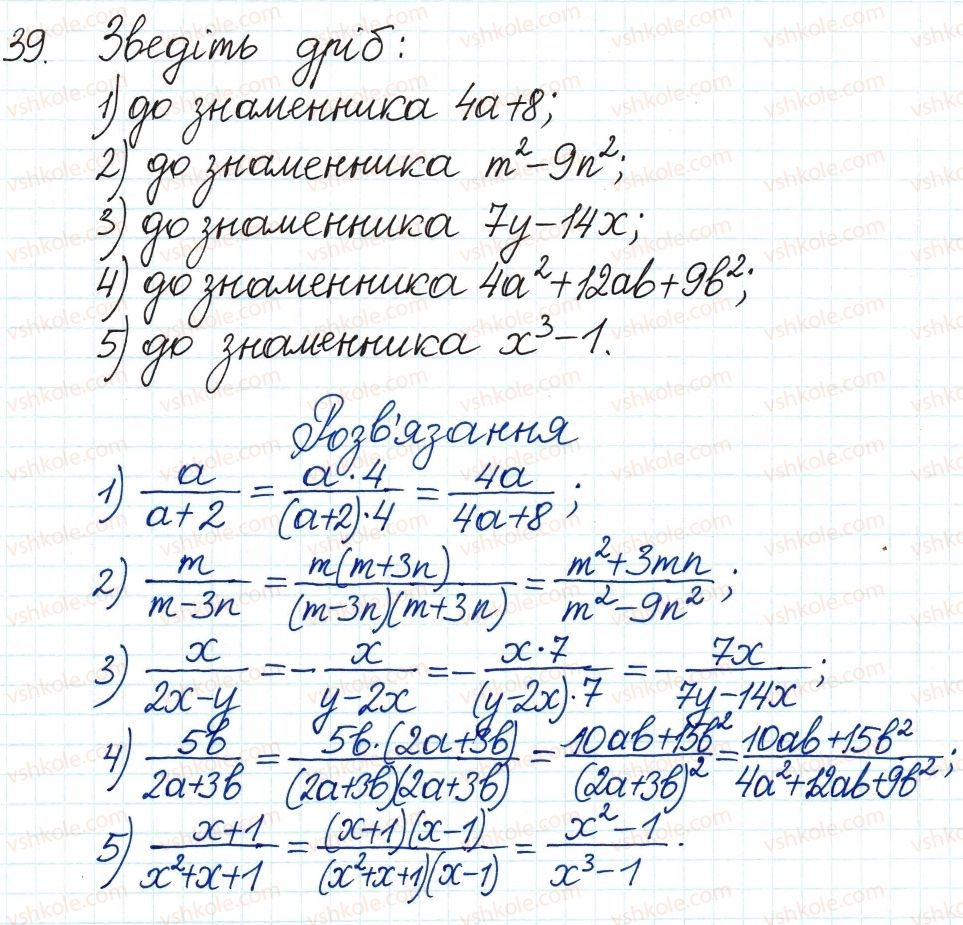 39. Зведіть дріб:
1) до знаменника 4a+8;
2) до знаменника m²-9n²;
3) до знаменника 7y-14x;
4) до знаменника 4a²+12ab+9b²;
5) до знаменника x³-1.
Розв'язання
1) a/(a+2) = (a·4)/((a+2)·4) = 4a/(4a+8);
2) m/(m-3n) = m(m+3n)/((m-3n)(m+3n)) = (m²+3mn)/(m²-9n²);
3) x/(2x-y) = -x/(y-2x) = -(x·7)/((y-2x)·7) = -7x/(7y-14x);
4) 5b/(2a+3b) = 5b·(2a+3b)/((2a+3b)(2a+3b)) = (10ab+15b²)/(2a+3b)² = (10ab+15b²)/(4a²+12ab+9b²);
5) (x+1)/(x²+x+1) = (x+1)(x-1)/((x²+x+1)(x-1)) = (x²-1)/(x³-1).
vshkole.com